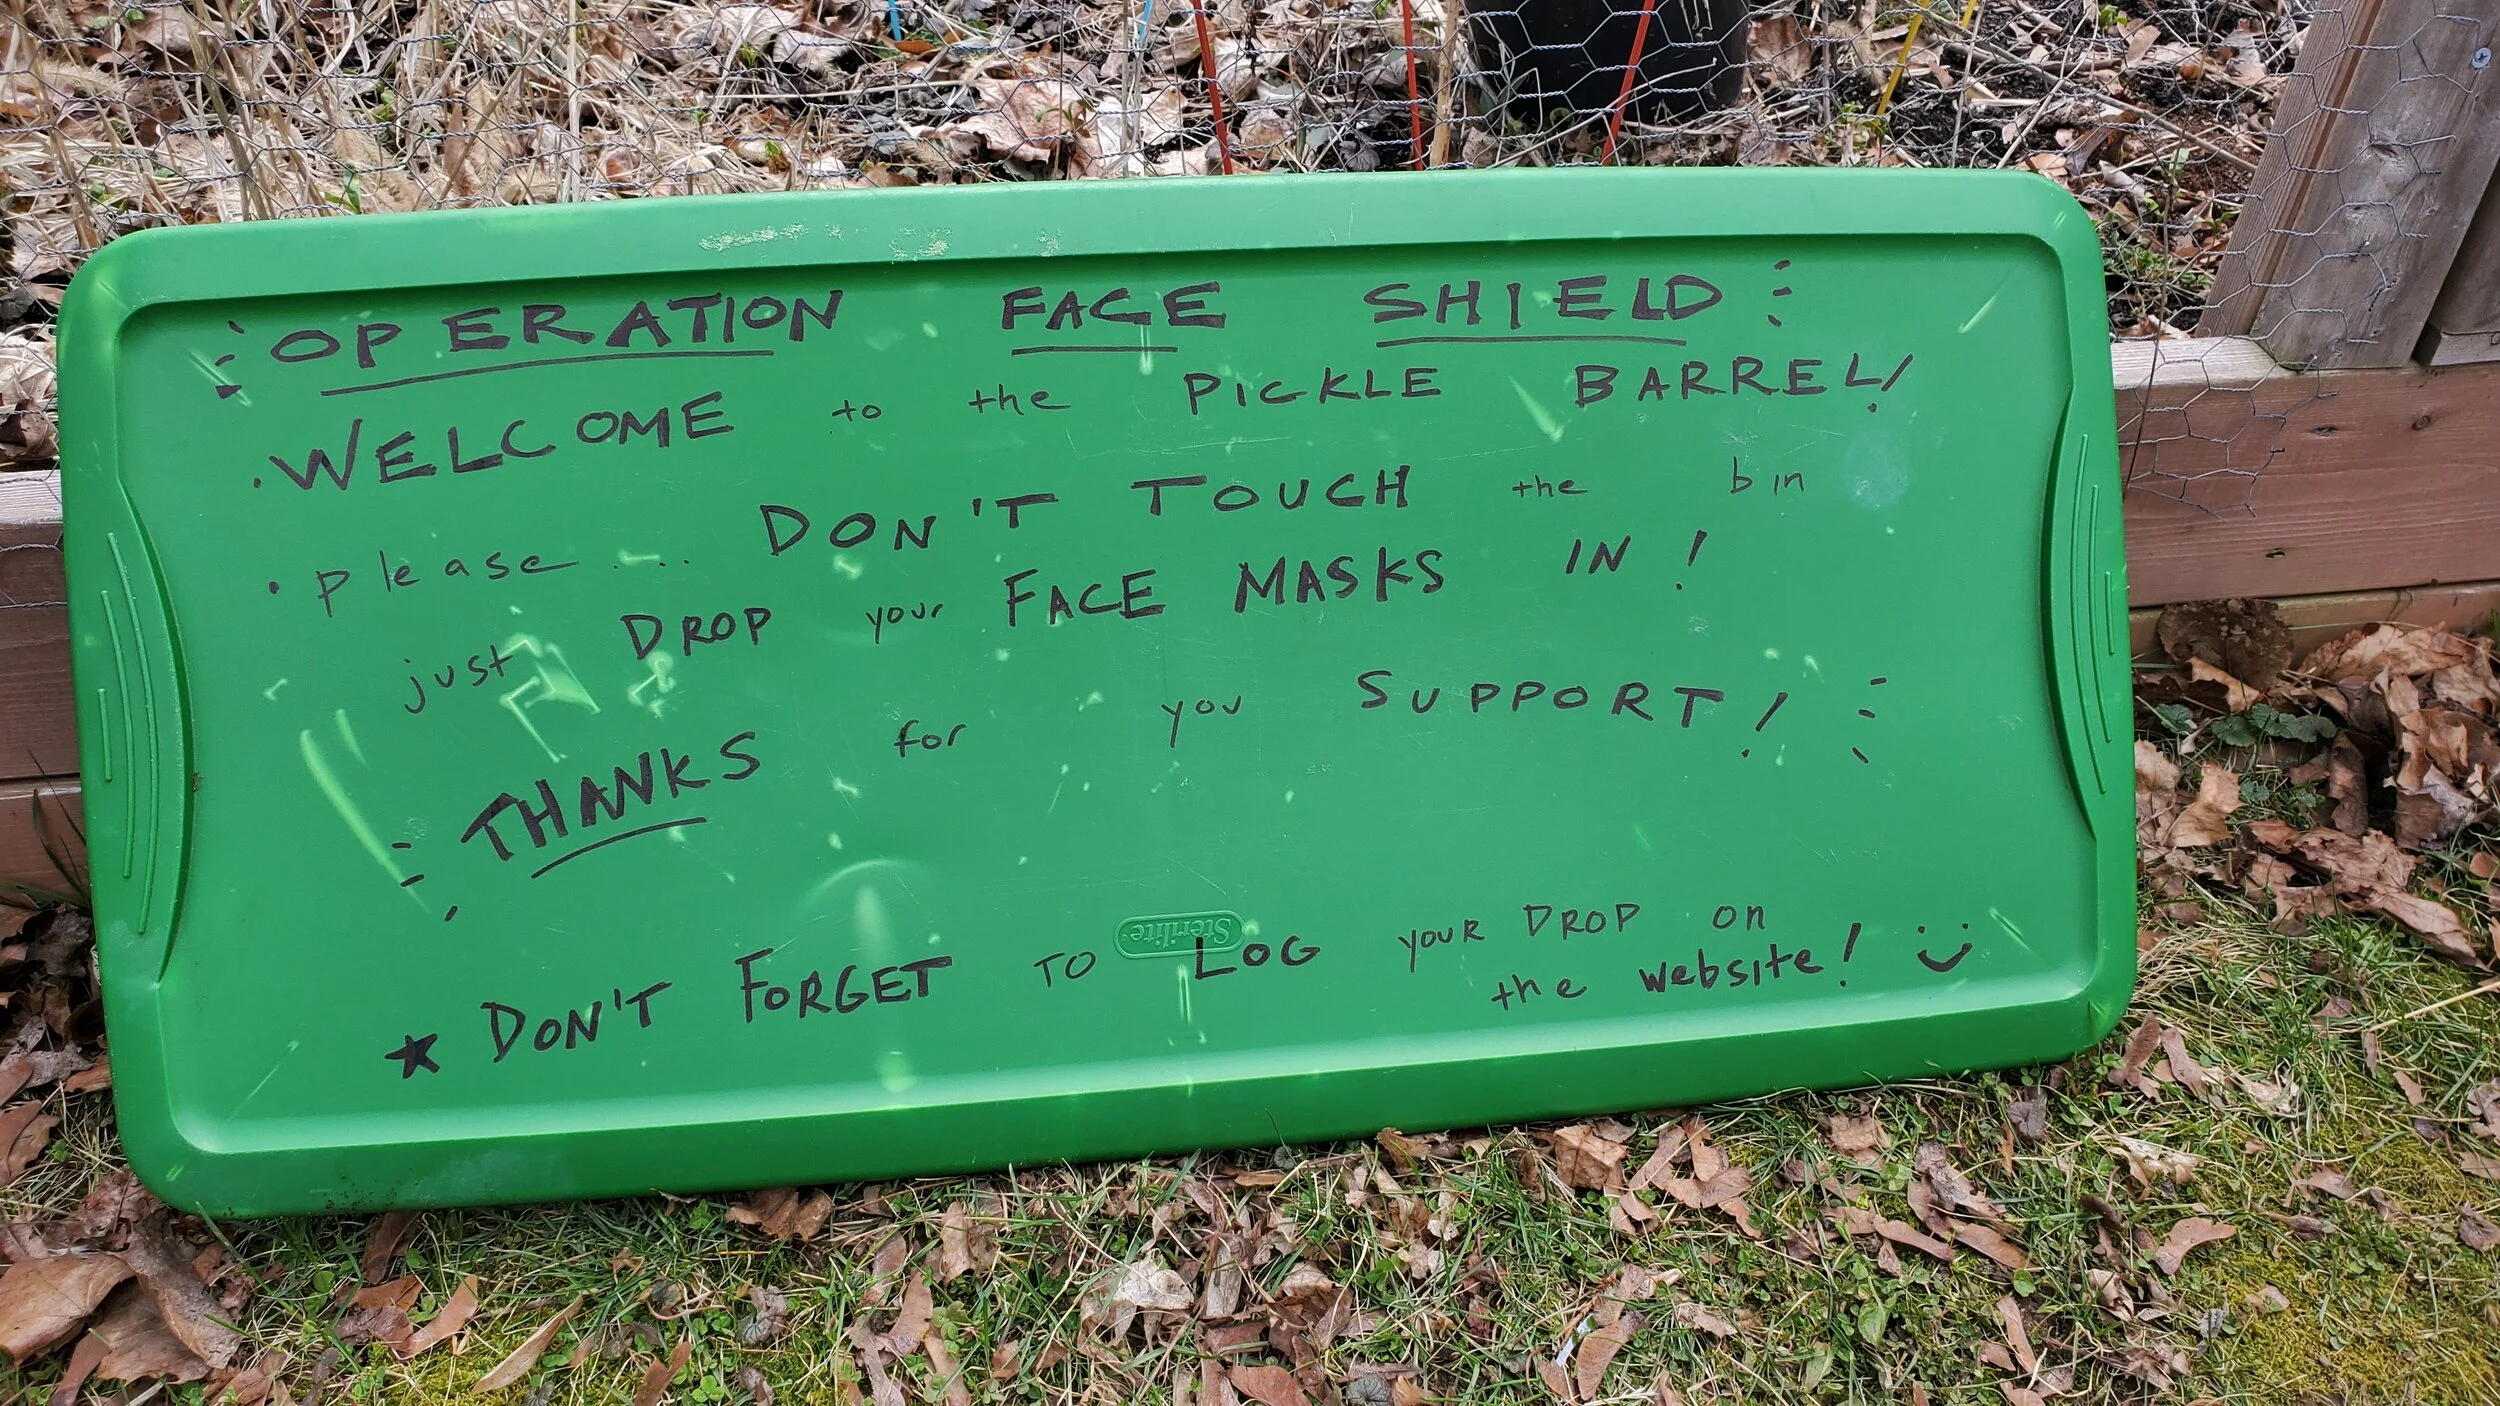 OPERATION FACE SHIELD
• WELCOME to the PICKLE BARREL!
• please.... DON'T TOUCH the bin
just DROP your FACE MASKS IN!
THANKS for you SUPPORT!
Sterilite
★ DON'T FORGET TO LOG YOUR DROP on
the website! :)